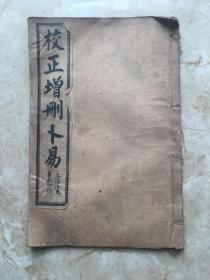 校正增刪卜易